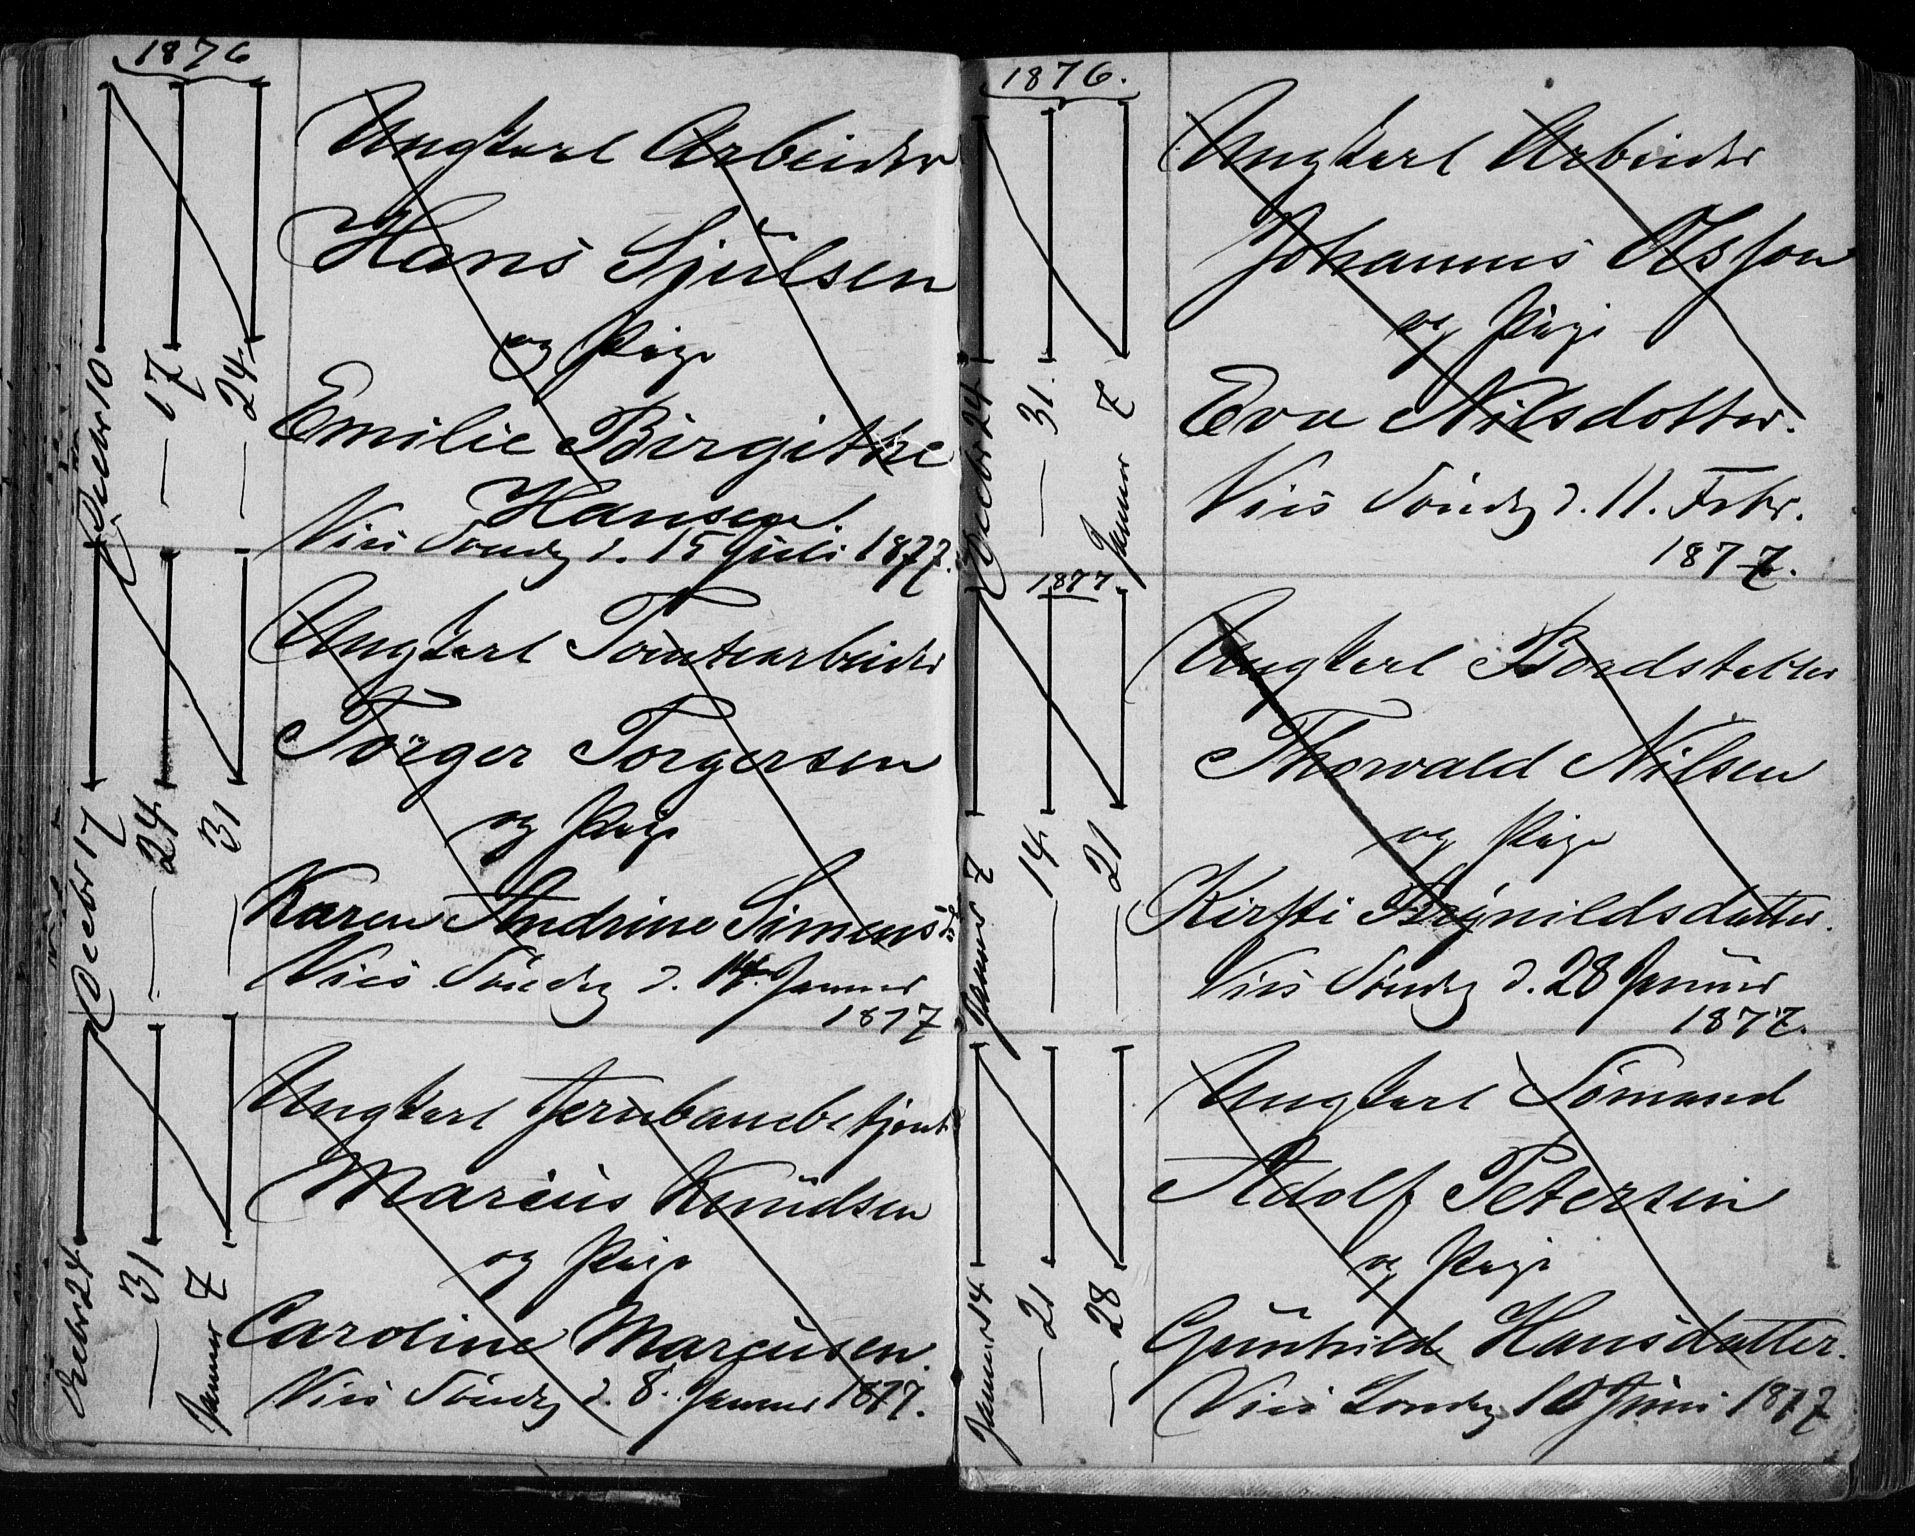 1876
Decbr 10
— 17
— 24
Ungkarl Arbeider
Hans Sjulsen
og Pige
Emilie Birgithe
Hansen
Vies Søndg d. 15 Juli 1877.
Decbr 17
— 24
— 31
Ungkarl Tomtearbeider
Torger Torgersen
og Pige
Karen Andrine Simens
Vies Søndg d. 14 Januar
1877
Decbr 24
— 31
Januar 7
Ungkarl Jernbanebetjent
Marius Knudsen
og Pige
Caroline Marcusen.
Vies Søndg d. 8. Januar 1877.
1876.
Decbr 24
— 31
Januar 7
Ungkarl Arbeider
Johannes Olsson
og Pige
Eva Nilsdotter.
Vies Søndg d. 11. Febr.
1877.
1877
Januar 7
— 14
— 21
Ungkarl Bordstabler
Thorvald Nilsen
og Pige
Kirsti Brynildsdatter.
Vies Søndg d. 28 Januar
1877.
Januar 14
— 21
— 28
Ungkarl Sømand
Adolf Petersen
og Pige
Gunhild Hansdatter.
Vies Sondg 10 Juni 1877